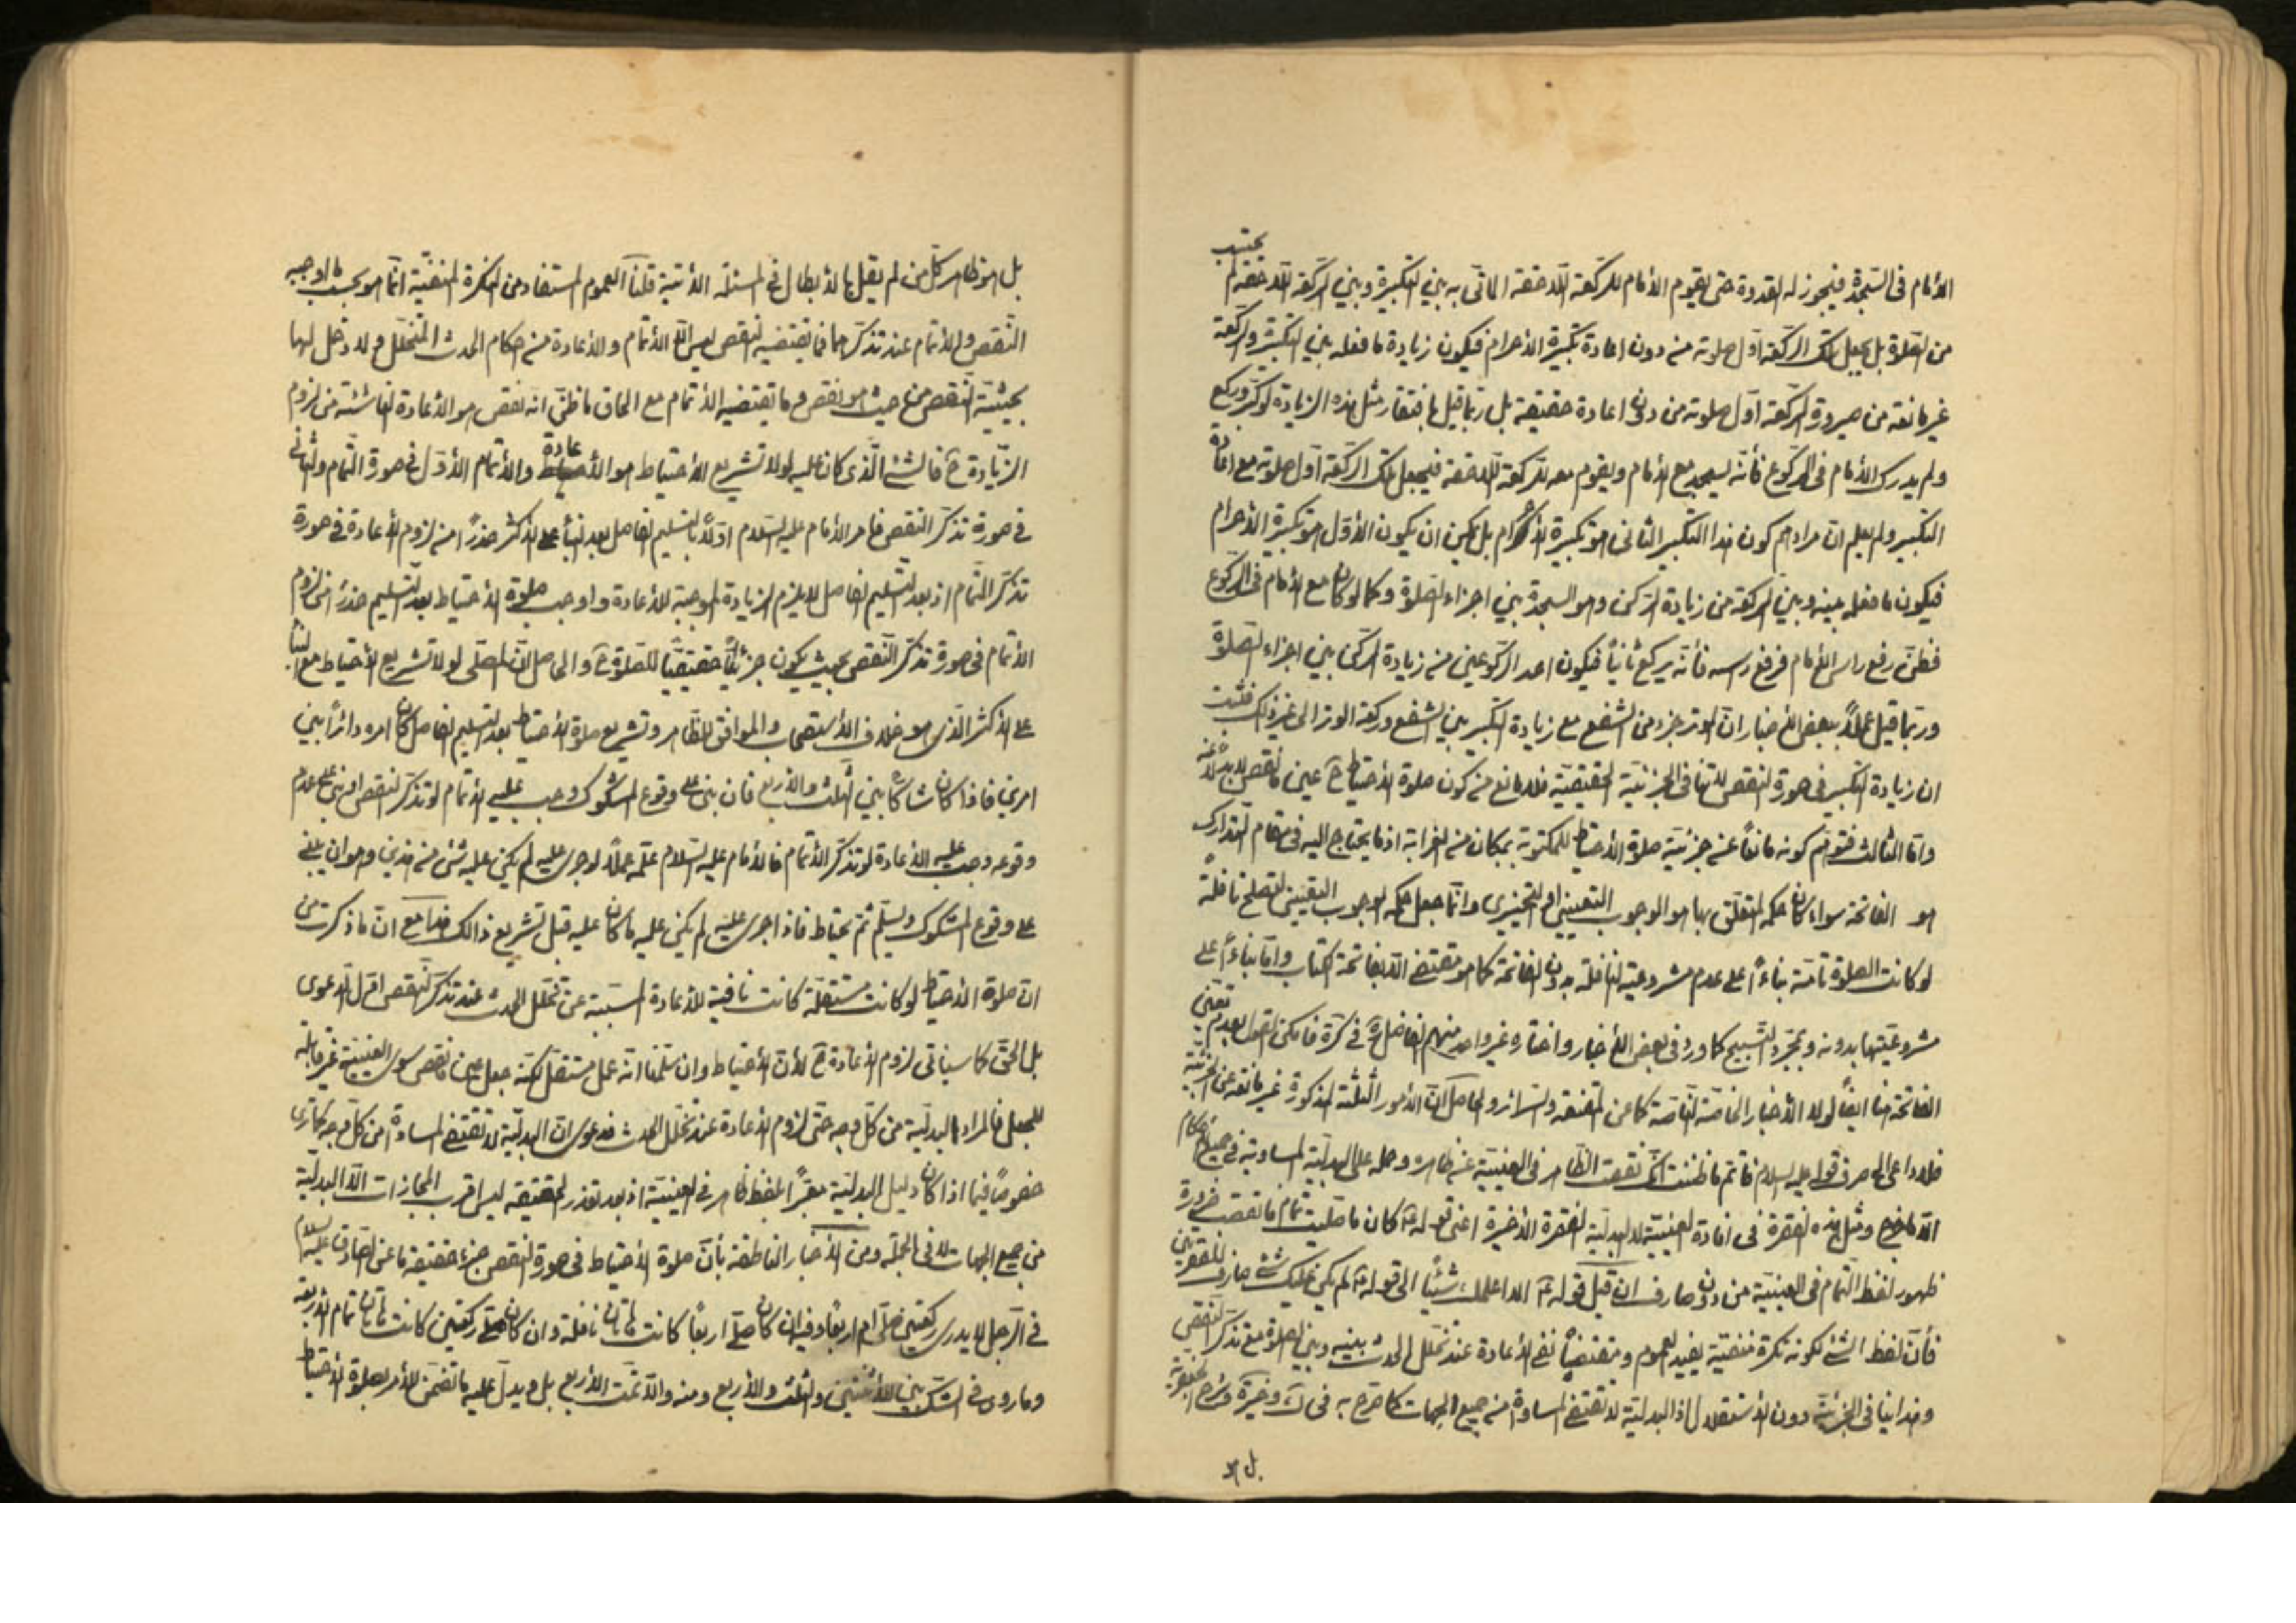 الأمام فى السجدة فيجوز له القدوة حتى يقوم الأمام للركعة اللاحقة الماتى به بين التكبيرة وبين الركعة اللاحقة لم يحتسب
من الصلوة بل يجعل تلك الركعة اول صلوته منه دون اعادة تكبيرة الأحرام فيكون زيادة ما فعله بين التكبيرة والركعة
غير مانعة من صيرورة الركعة اول صلوته من دون اعادة حقيقة بل ربما قيل باغتفار مثل هذه الزيادة لو كبر وركع
ولم يدرك الأمام فى الركوع فأنه يسجد مع الأمام ويقوم معه للركعة اللاحقة فيجعل تلك الركعة اول صلوته مع اعادة
التكبير ولم يعلم ان مرادهم كون هذا التكبير الثانى هو تكبيرة الأحرام بل يمكن ان يكون الأول هو تكبيرة الأحرام
فيكون ما فعله بينه وبين الركعة من زيادة الركن وهو السجدة بين اجزاء الصلوة وكما لو كان مع الأمام فى الركوع
فظن رفع راس الأمام فرفع رأسه فأنه يركع ثانياً فيكون احد الركوعين من زيادة الركن بين اجزاء الصلوة
وربما قيل عملاً ببعض الأخبار ان الوتر جزء من الشفع مع زيادة التكبير بين الشفع وركعة الوتر الى غير ذلك فثبت
ان زيادة التكبير فى صورة النقص لا تنافى الجزئية الحقيقية فلا مانع من كون صلوة الأحتياط ح عين ما نقص لا بدلاً عنه
واما الثالث فتوهم كونه مانعاً عن جزئية صلوة الأحتياط للمكتوبة بمكان من الغرابة اذ ما يحتاج اليه فى مقام التدارك
هو الفاتحة سواء كان حكمه المتعلق بها هو الوجوب التعيينى او التخييرى وانما جعل حكمه الوجوب التعيينى لتصلح نافلةً
لو كانت الصلوة تامة بناءً على عدم مشروعية النافلة بدون الفاتحة كما هو مقتضى الا بفاتحة الكتاب واما بناءً على
مشروعيتها بدونه وبمجرد التسبيح كما ورد فى بعض الأخبار واختاره غير واحد منهم الفاضل ره فى كرة فأمكن القول بعدم تعين
الفاتحة هنا ايضاً لولا الأخبار الخاصة الناصة كما عن المقنعة والسرائر والحاصل ان الأمور الثلثة المذكورة غير مانعة عن الجزئية
فلا داعى الى صرف قوله عليه السلام فاتم ما ظننت انك نقصت الظاهر فى العينية عن ظاهره وحمله على البدلية المساوية فى جميع الأحكام
الا ما خرج ومثل هذه الفقرة فى افادة العينية لا البدلية الفقرة الأخيرة اعنى قوله ع كان ما صليت تمام ما نقصت ضرورة
ظهور لفظ التمام فى العينية من دون صارف ان قيل قوله ع الا اعلمك شيئاً الى قوله ع لم يكن عليك شئ صارف للفقرتين
فأن لفظ الشئ لكونه نكرة منفية يفيد العموم ومقتضياً نفى الأعادة عند تخلل الحدث بينه وبين الصلوة مع تذكر النقص
وهذا ينافى الجزئية دون الأستقلال اذ البدلية لا تقتضى المساواة من جميع الجهات كما صرح به فى ك وخيرة وشرح الجعفرية
بل هو
بل هو ظاهر كل من لم يقل بالأبطال فى المسئلة الأتية قلنا العموم المستفاد من النكرة المنفية انما هو بحسب ما اوجبه
النقص ولا الأتمام عند تذكرهما فما تقتضيه النقص ليس الا الأتمام والأعادة من احكام الحدث المتخلل ولا دخل لها
بحيثية النقص من حيث هو نقص وما تقتضيه الأتمام مع الحاق ما ظن انه نقص هو الأعادة الناشئة من لزوم
الزيادة ح فالشئ الذى كان عليه لولا تشريع الأحتياط هو الأعادة والأتمام الأول فى صورة التمام والثانى
فى صورة تذكر النقص فامر الأمام عليه السلام اولاً بالتسليم الفاصل بعد البناء على الأكثر حذراً من لزوم الأعادة فى صورة
تذكر التمام اذ بعد التسليم الفاصل لا يلزم الزيادة الموجبة للأعادة واوجب صلوة الأحتياط بعد التسليم حذراً من لزوم
الأتمام فى صورة تذكر النقص بحيث يكون جزئياً حقيقياً للصلوة ح والحاصل ان المصلى لولا تشريع الأحتياط مع البناء
على الأكثر الذى هو خلاف الأستصحاب والموافق للظاهر وتشريع صلوة الأحتياط بعد التسليم الفاصل كان امره دائراً بين
امرين فاذا كان شاكا بين الثلث والأربع فان بنى على وقوع المشكوك وجب عليه الأتمام لو تذكر النقص او بنى على عدم
وقوعه وجب عليه الأعادة لو تذكر الأتمام فالأمام عليه السلام علمه عملاً لو جرى عليه لم يكن عليه شئ من هذين وهو ان يبنى
على وقوع المشكوك ويسلم ثم يحتاط فاذا جرى عليه لم يكن عليه ما كان عليه قبل تشريع ذالك هذا مع ان ما ذكرت من
ان صلوة الأحتياط لو كانت مستقلة كانت نافية للأعادة المسببة عن تخلل الحدث عند تذكر النقص اول الدعوى
بل الحق كما سيأتى لزوم الأعادة ح لأن الأحتياط وان سلمنا انه عمل مستقل لكنه جعل عين ما نقص سوى العينية غير قابلة
للجعل فالمراد البدلية من كل وجه حتى لزوم الأعادة عند تخلل الحدث فدعوى ان البدلية لا تقتضى المساواة من كل وجه كما ترى
خصوصاً فيما اذا كان دليل البدلية معبراً بلفظ ظاهر فى العينية اذ بعد تعذر الحقيقة ليس اقرب المجازات الا البدلية
من جميع الجهات لا فى الجملة ومن الأخبار الناطقة بأن صلوة الأحتياط فى صورة النقص جزء حقيقة ما عن الصادق عليه السلام
فى الرجل لا يدرى ركعتين صلى ام اربعاً وفيه ان كان صلى اربعاً كانت هاتان نافلة وان كان صلى ركعتين كانت هاتان تمام الأربعة
وما روى فى الشك بين الأثنتين والثلث والأربع ومنه والا تمت الأربع بل ويدل عليه ما تضمن للأمر بصلوة الأحتياط